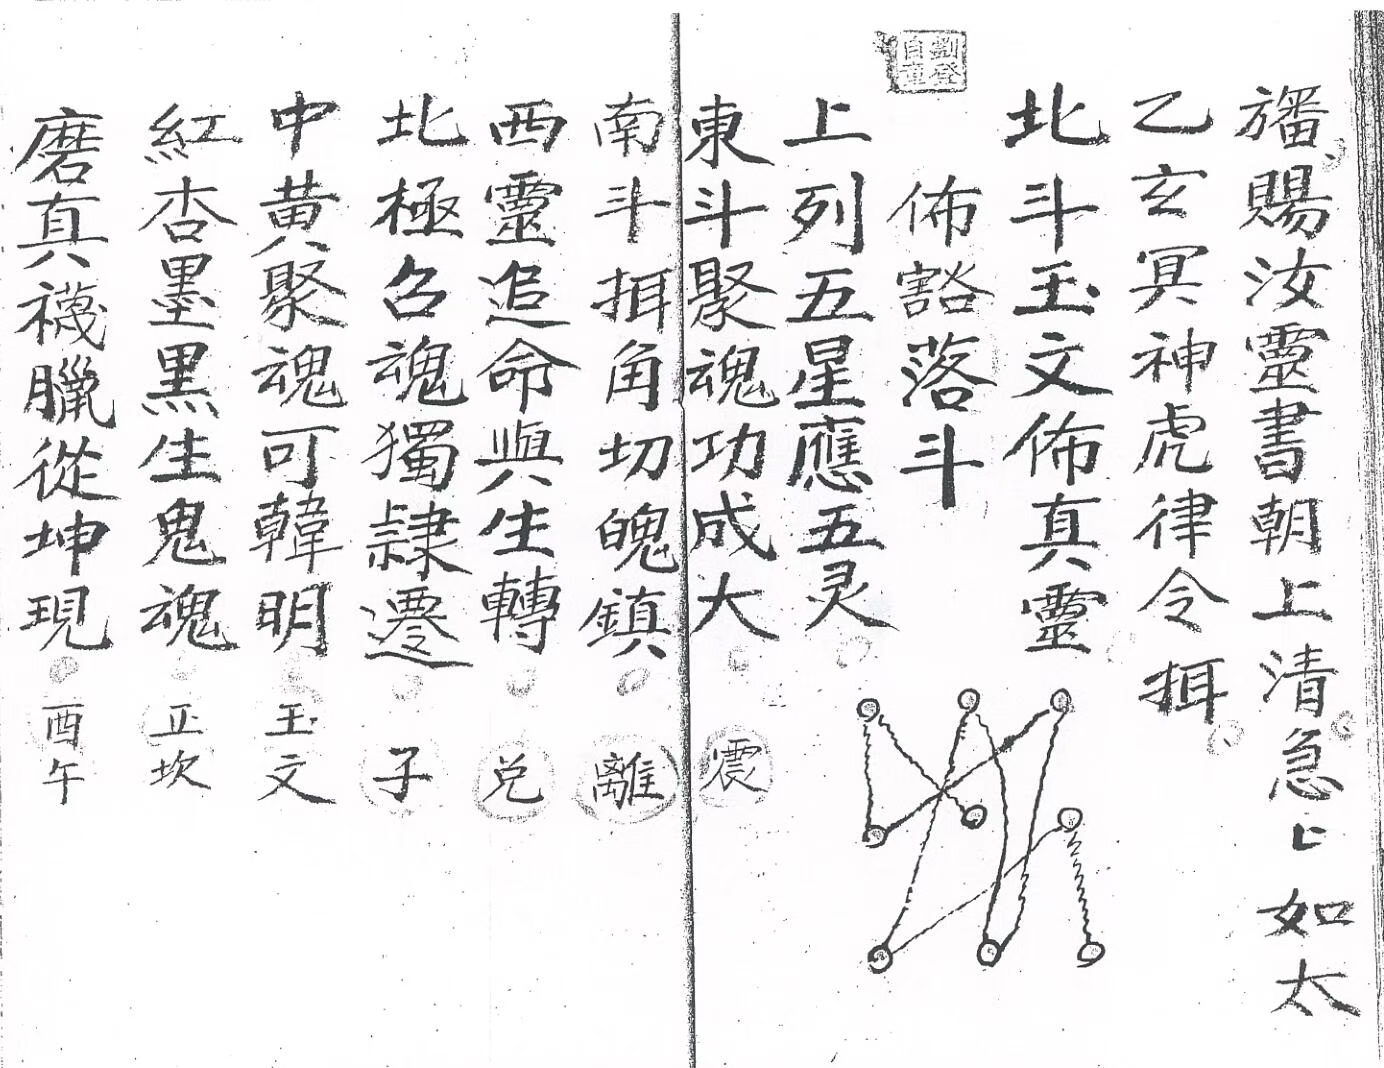 旙賜汝靈書朝上清急匕如太
乙玄冥神虎律令挕
北斗玉文佈真靈
佈豁落斗
上列五星應五灵
東斗聚魂功成大 震
南斗挕角切魄鎮 離
西靈追命與生轉 兌
北極召魂獨隸遷 子
中黃聚魂可韓明 玉文
紅杏墨黑生鬼魂 正坎
磨真襪臘從坤現 酉午